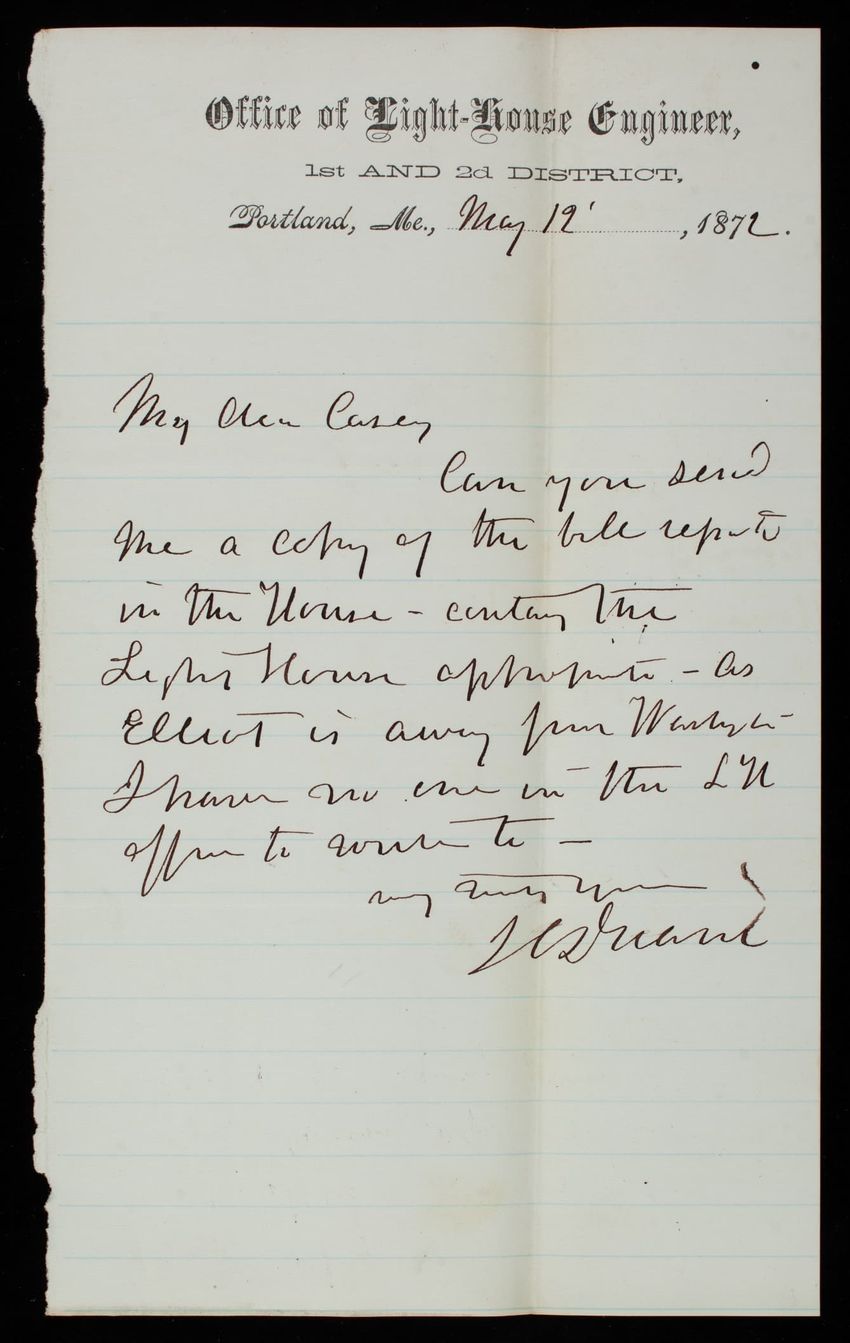 Office of Light-House Engineer,
1st AND 2d DISTRICT,
Portland, Me., May 12, 1872.
My dear Casey
Can you send
me a copy of the bill reported
in the House - containing the
Light House appropriation - As
Elliot is away from Washington
I have no one in the LH
office to write to -
very truly yours
JC Duane